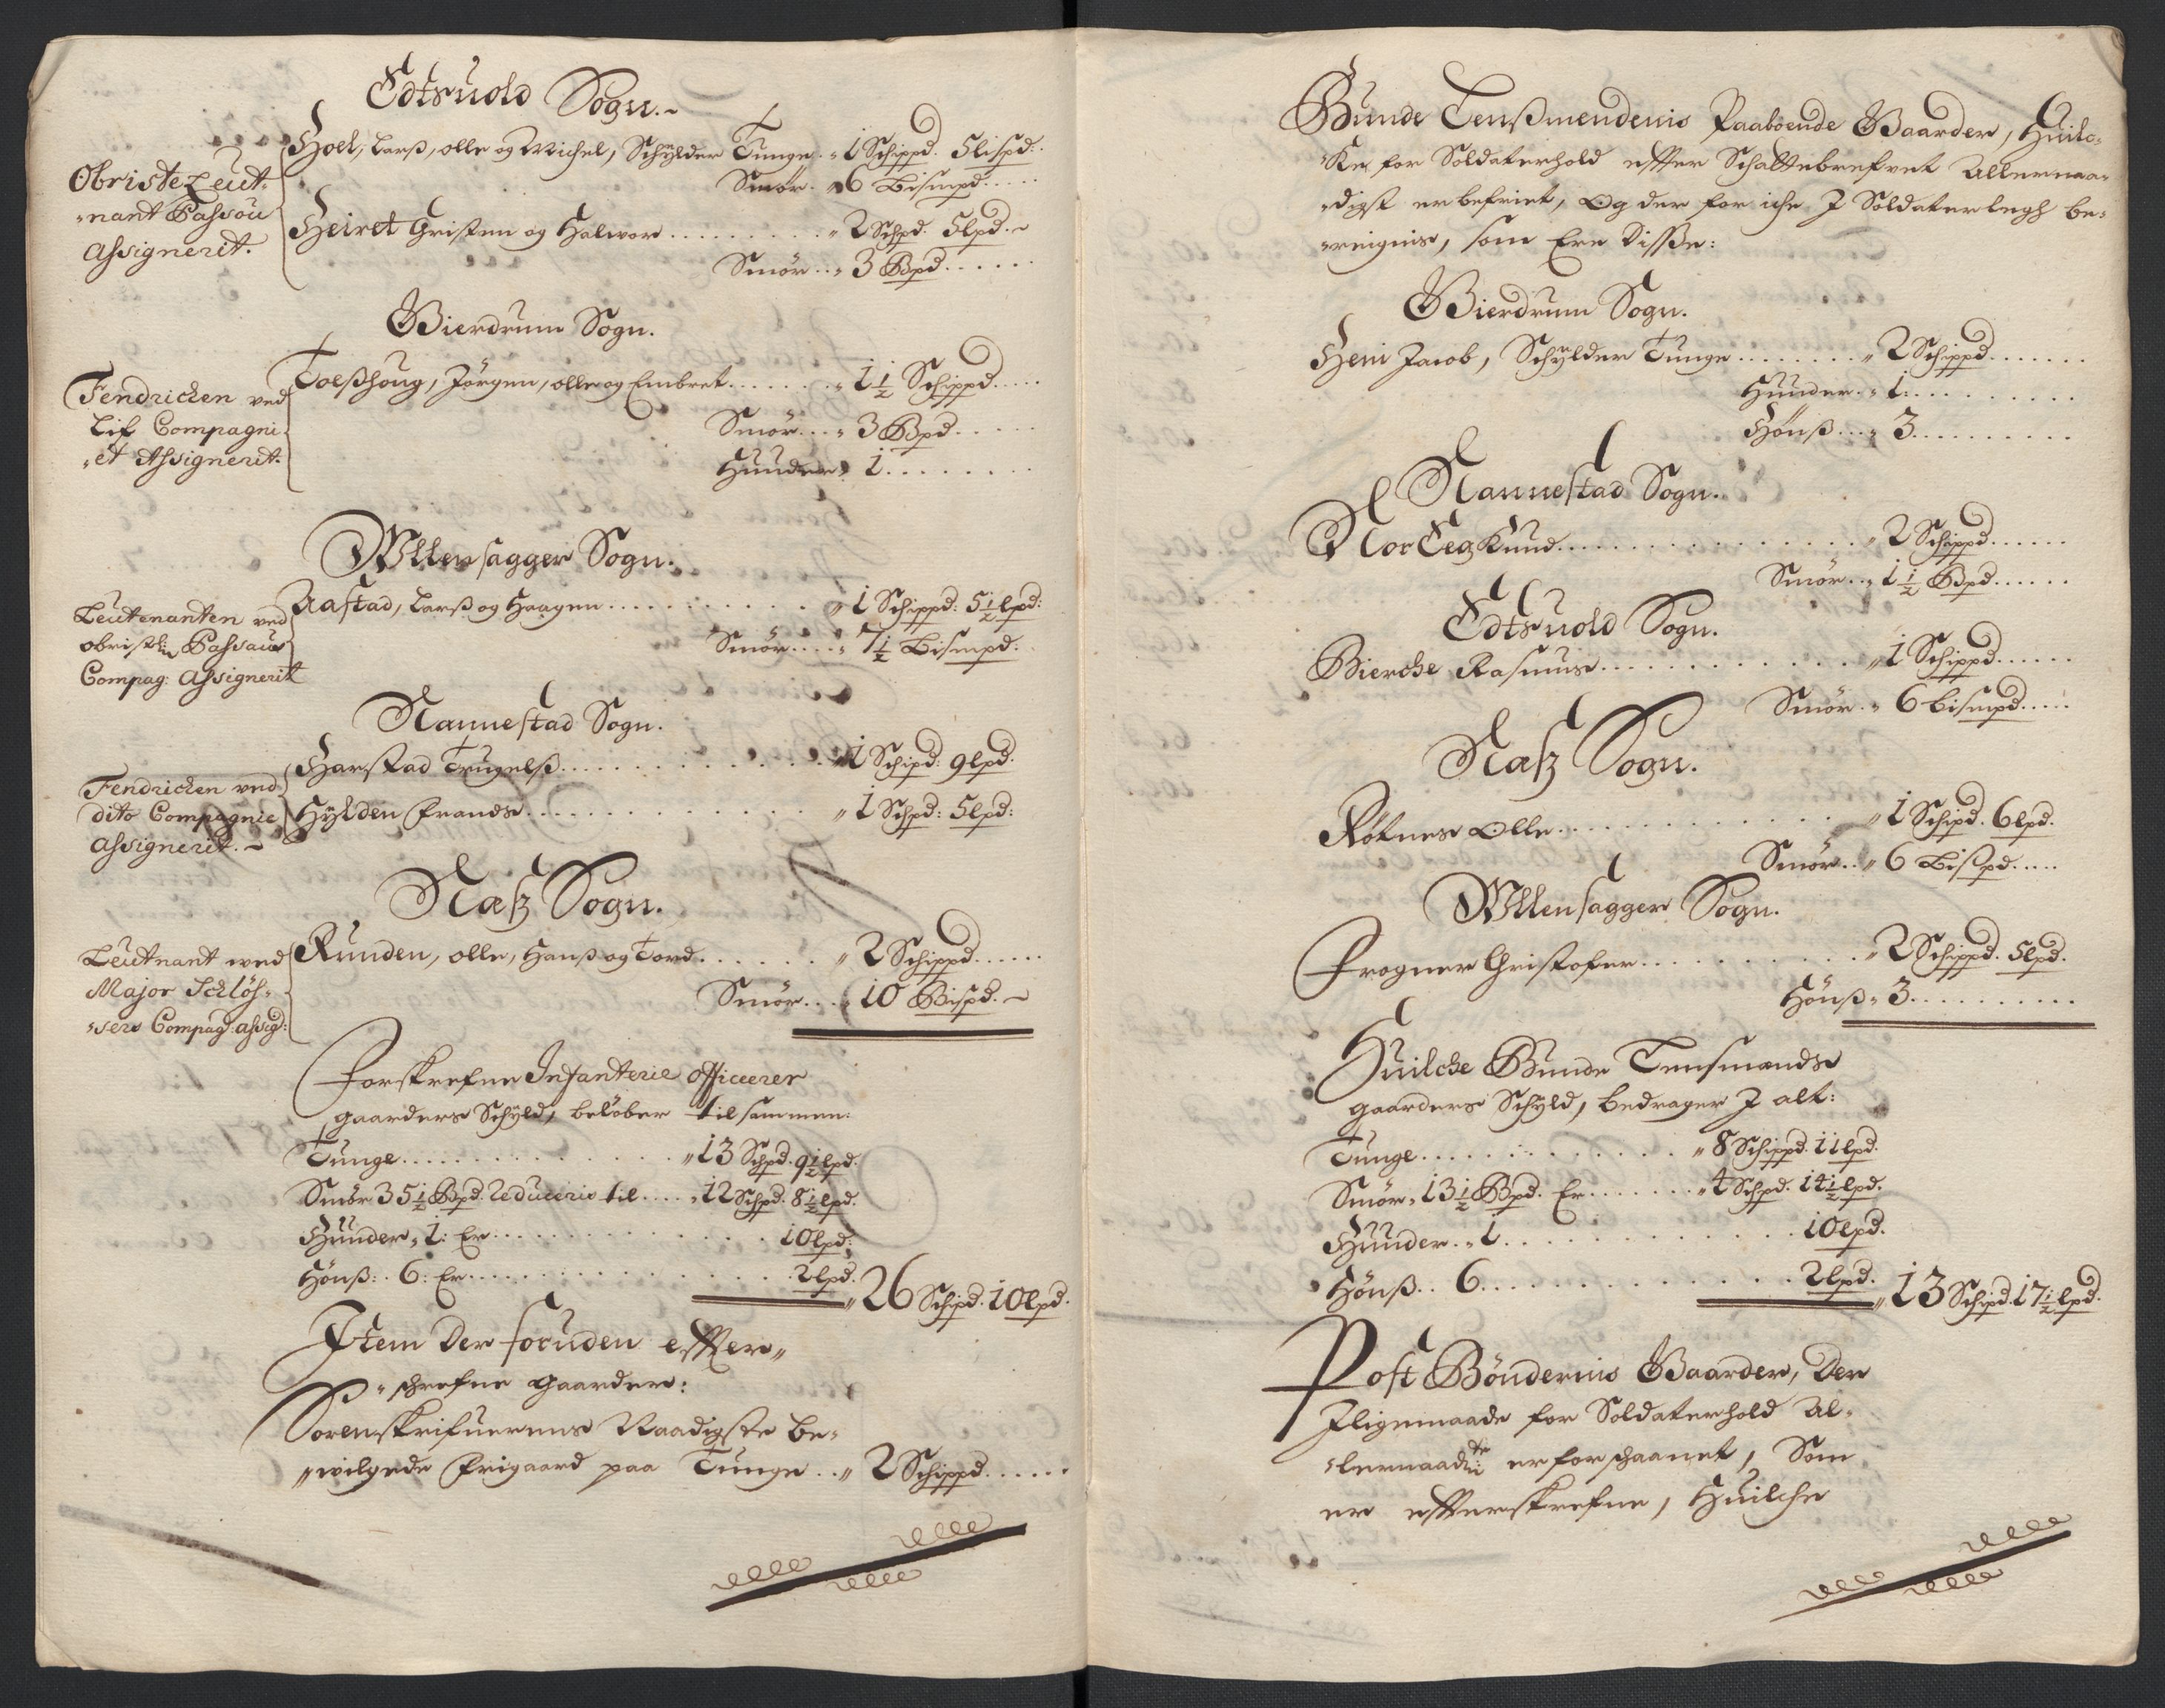 Edtsuold Sogn.
Obriste Leut-
nant Passou
Assignerit.
Hoel, Larß, olle og Michel, Schÿlder Tunge. 1 Schippd. 5 lispd.
Smör. 6 Bismpd.
Heiret Christen og Halwor 2 Schpd. 5 lpd.
Smör 3 Bpd.
Gierdrum Sogn.
Fendricken ved
Lif Compagni-
et Assignerit.
Toeßhoug, Jörgen, olle og Embret 1½ Schippd.
Smör 3 Bpd.
Hunder 1.
Wllensagger Sogn.
Leutenanten ved
obristl: Passaus
Compag: Assignerit
Aastad, Larß og Haagen 1 Schippd: 5½ lpd:
Smör 7½ Bismpd.
Nannestad Sogn.
Fendricken ved
dito Compagnie
Assignerit.
Harstad Trugelß 1 Schipd: 9 lpd.
Hÿlden Frands 1 Schpd: 5 lpd:
Næß Sogn.
Leutnant wed
Major Schlös-
sers Compag: assig:
Runden, olle, Hanß og Tord 2 Schippd.
Smör 10 Bispd.
Forskrefne Infanterie officerer
gaarders Schÿld, belöber tilsammen:
Tunge 13 Schpd. 9½ lpd.
Smör 35½ Bpd. Reduceris til 12 Schpd. 8½ lpd.
Hunder 1: Er 10 lpd:
Hönß: 6: Er 2 lpd.
26 Schipd. 10 lpd.
Item Der foruden effter-
schrefne gaarder:
Sorenskrifuerens Naadigste be-
wilgede Frigaard paa Tunge 2 Schippd.
Bunde Lenßmendenis Paaboende Gaarder, Huilc-
ke for Soldaterhold effter Schattebrefvet Allernaa-
digst er befriet, Og der for iche J Soldaterlegh be-
reignis, som Ere Disse:
Gierdrum Sogn.
Heni Jacob, Schÿlder Tunge 2 Schippd.
Hunder 1.
Hönß 3.
Nannestad Sogn.
Nor Eeg Knud 2 Schippd.
Smör 1½ Bpd.
Edtsuold Sogn.
Bierche Rasmus 1 Schippd.
Smör 6 bismpd.
Næß Sogn.
Rötnes Olle 1 Schipd. 6 lpd.
Smör 6 Bißpd.
Wllensagger Sogn.
Frogner Christofer 2 Schippd. 5 lpd.
Hönß 3.
Huilche Bunde Lensmænds
gaarders Schÿld, bedrager J alt:
Tunge 8 Schippd. 11 lpd.
Smör 13½ Bpd. Er 4 Schpd. 14½ lpd.
Hunder 1 10 lpd.
Hönß 6 2 lpd.
13 Schipd. 17½ lpd.
Post Bönderenis Gaarder, Der
Jligemaade for Soldaterhold Al-
lernaadte er forschaanet, Som
er effterskrefne, Huilche